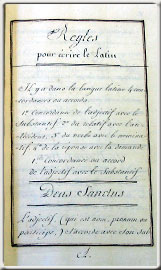 Regles
pour écrire le Latin
Il y a dans la langue latine 4 con
cordances ou accords
1º Concordance de l'adjectif avec le
Substantif 2º du relatif avec l'an
técédent, 3º du verbe avec le nomina
tif 4º de la réponse avec la demande
1ere Concordance ou accord
de l'adjectif avec le Substantif
Deus Sanctus
L'adjectif (qui est nom, pronom ou
participe,) s'accorde avec son sub